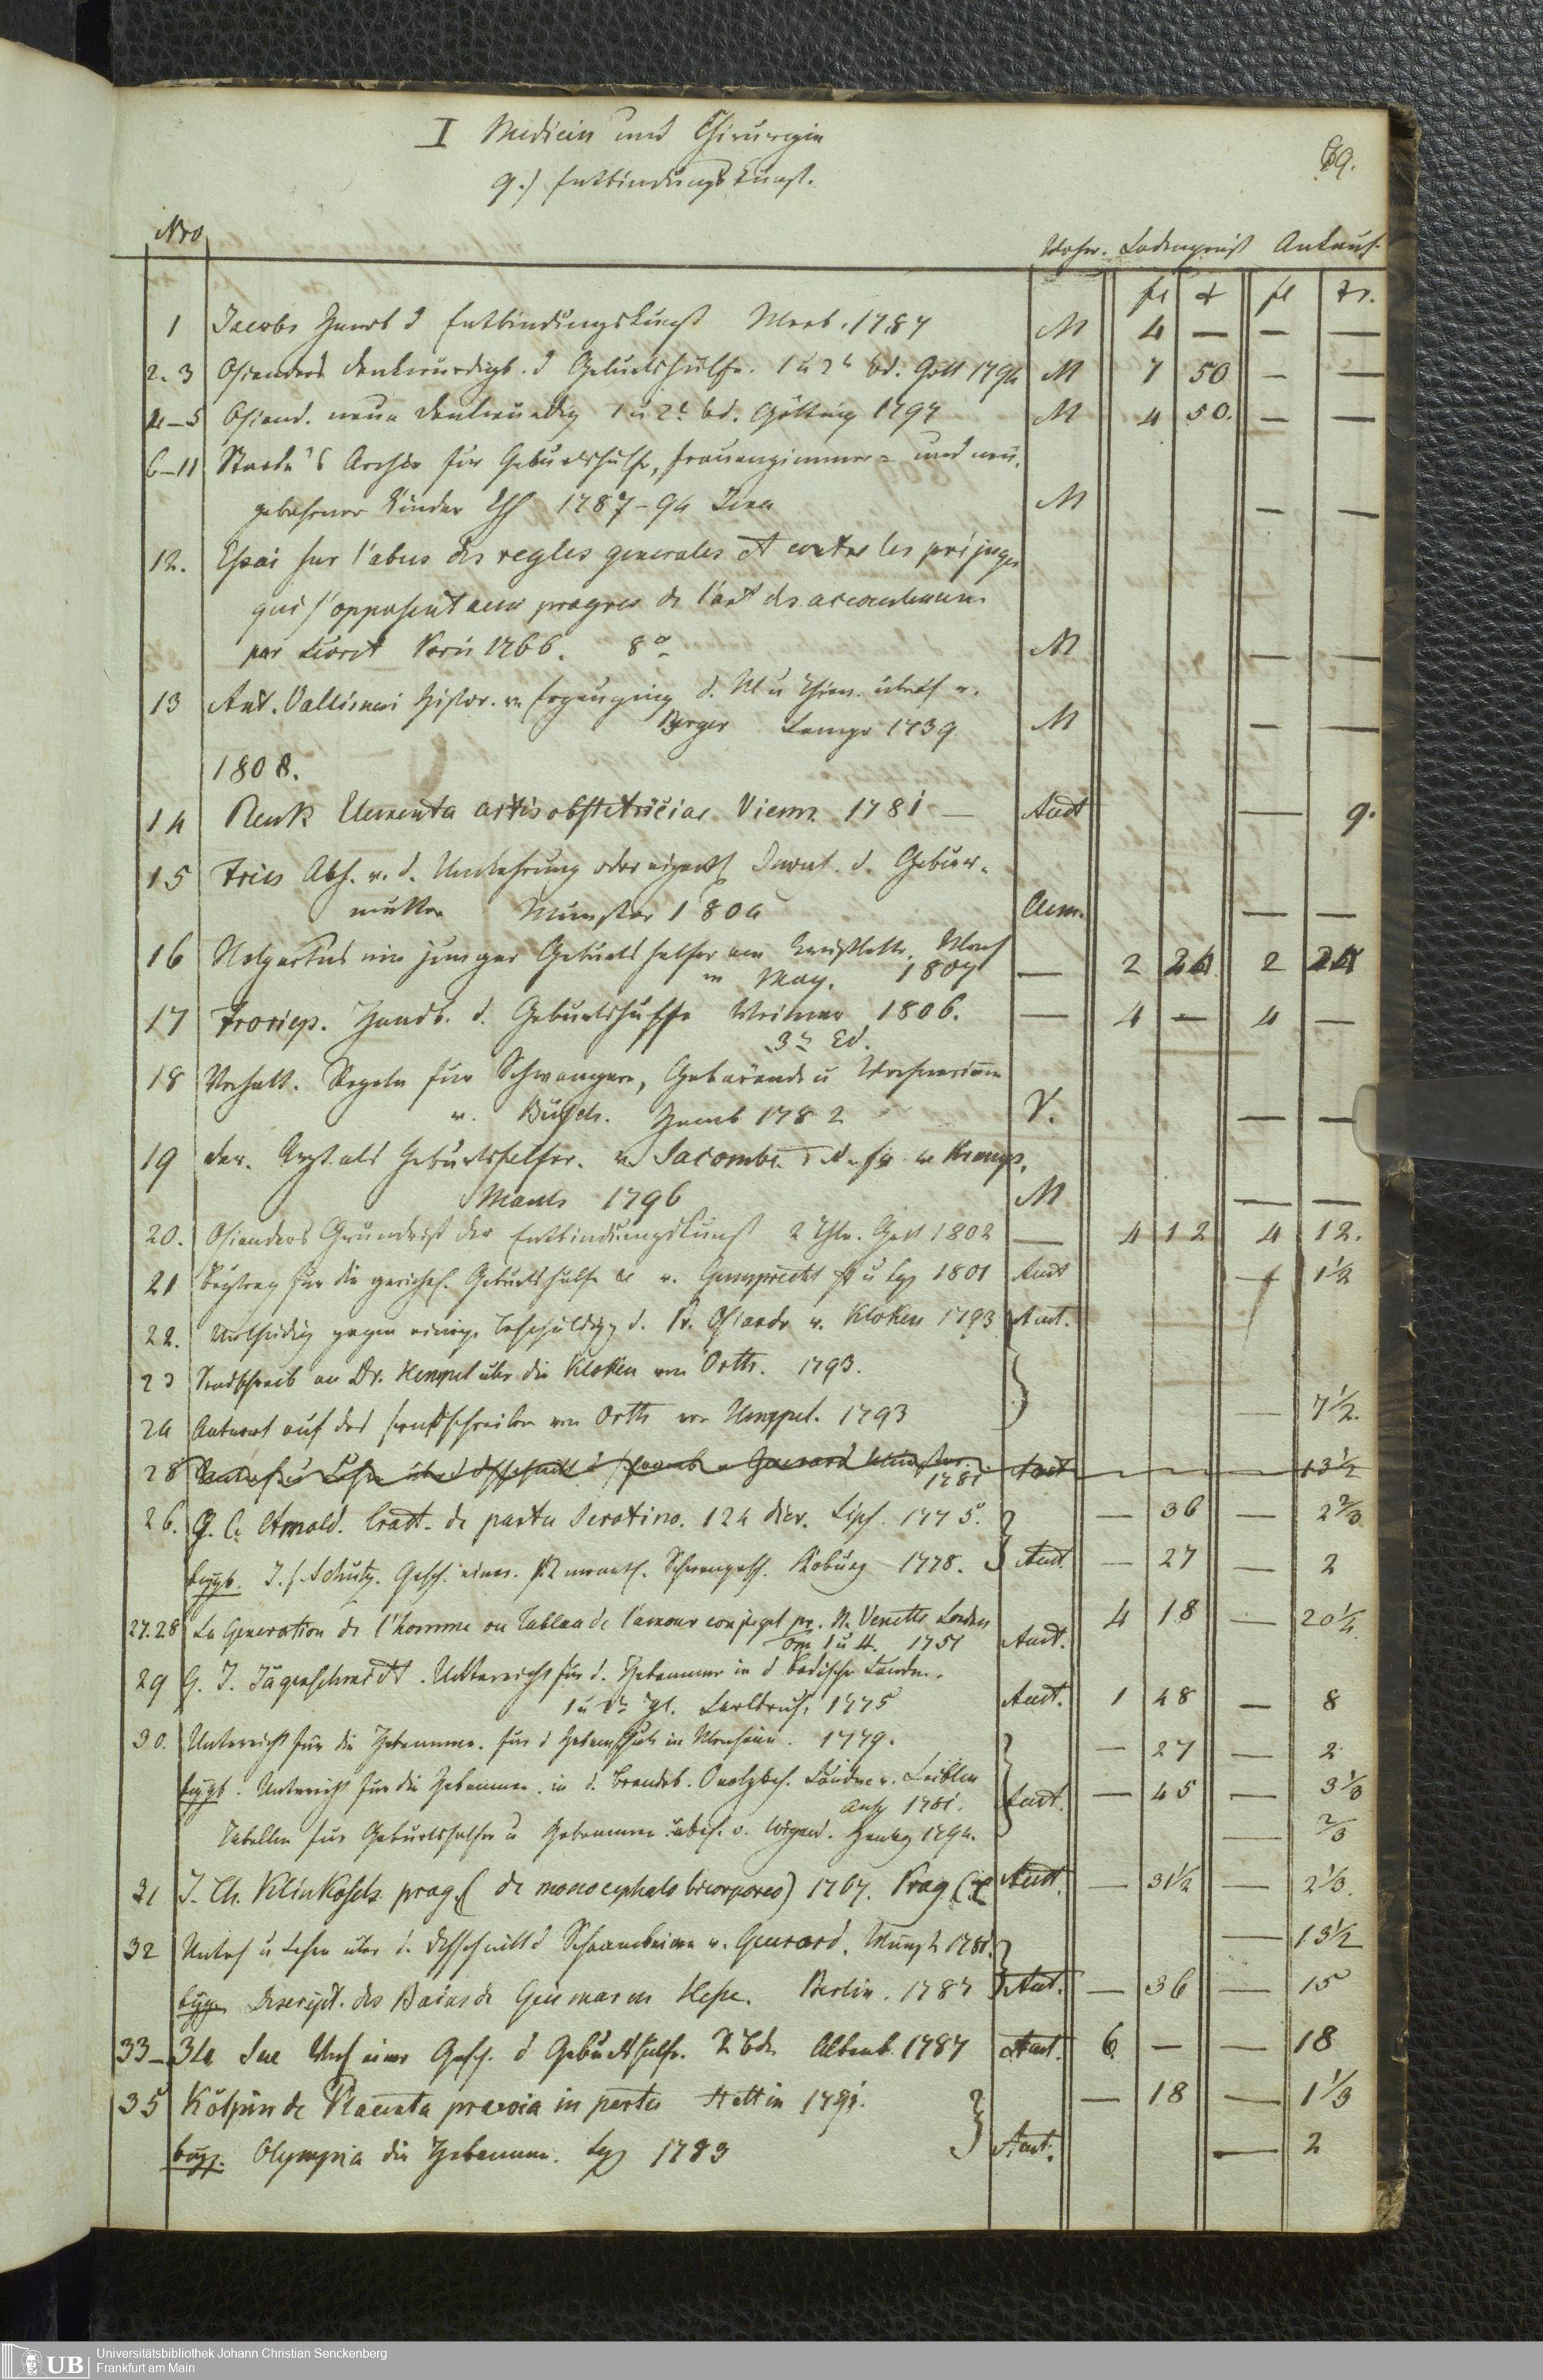 I Medicin und Chirurgie
69.
g.) Entbindungskunst.
Nro
Woher. Ladenpreiß Ankauf.
fl x fl xr.
1 Jacobs Handb d Entbindungskunst Marb. 1787 M 4 — — —
2. 3 Osianders Denkwürdigk. d Geburtshülfe. 1 u 2r bd. Gött 1794 M 7 50 — —
4–5 Osiand. neue Denkwürdig 1 u 2r bd. Götting 1797 M 4 50. — —
6–11 Starke's Archiv für Geburtshülfe, Frauenzimmer = und neu.
gebohrner Kinder 1787–94 Jena M — —
12. Essai sur l'abus des regles generales et contre les prejuges
qui s'opposent aux progres de l'art des accouchemens
par Levret Paris 1766. 8o M — —
13 Ant. Vallisneri Histor. v Erzeugung d. M u Thier. übers v.
Berger Lemgo 1739 M — —
1808.
14 Plenk Elementa artis obstetriciae Vienn 1781 — Auct — 9.
15 Fries Abh. v. d. Umkehrung oder eigentl Invers. d. Gebär-
mutter Münster 1804 Aem. — —
16 ein junger Geburtshelfer an
in May. 1807 — 2 24 2 24
17 Froriep. Handb. d. Geburtshülfe Weimar 1806. — 4 — 4 —
3te Ed.
18 Verhalt. Regeln für Schwangere, Gebärende u Wöchnerinnen
v. Hamb 1782 V. — —
19 der Arzt als Geburtshelfer. v. Sacombe
Manh 1796 M — —
20. Osianders Grundriß der Entbindungskunst 2 Thle. Gött 1802 — 4 12 4 12.
21 Beytrag für die gerichtl. Geburtshülfe v. Gumprecht u Lpz 1801 Auct — 1½
22. Vertheidig gegen einige Beschuldig d. Pr. Osiandr v. Kloken 1793 Auct.
23 Sendschreib an Dr. Hempel über die Kloken von Orth. 1793. }
24 Antwort auf das Sendschreiben von Orth von Hempel. 1793 — 7½.
1781 Auct 13½
26. G. C. Arnold. Tract. de partu serotino. 324 dier. Lips. 1775. } — 36 — 2⅔
beygb. J. F. Schütz. Gesch. einer. monatl. Schwangersch. Koburg 1778. Auct — 27 — 2
27. 28 La Generation de l'homme ou Tableau de l'amour conjugal pr. N. Venette Londres
Tom 1 u 2. 1751 Auct. 4 18 — 20¼.
29 G. J. Jägerschmidt. Unterricht für d. Hebammen in d badische Landen.
1 u 2r Thl. Carlsruh. 1775 Auct. 1 48 — 8
30. Unterricht für die Hebammen. für d Hebamschule in 1779. } — 27 — 2
beygb. Unterricht für die Hebammen. in d. Brandeb. Onolzbch. Landen v. Leiblin
Ansp 1781. Auct. — 45 — 3⅓
Tabellen für Geburtshelfer u Hebammen übers. v. Wigand. Hambg 1794. — ⅔
31 J. Th. Klinkosch prog. (de monocephalo bicorporeo) 1767. Prag Auct. — 31½ — 2⅓.
32 Unters u Lehre über d. Schnitt d Schaambeine v. Guerard. Münst 1781. } — 13½
beyge Descript. des Bains de Geismar en Hesse. Berlin. 1787 Auct. — 36 — 15
33–34 Sue Vers einer Gesch. d Geburtshülfe. 2 Bde Altenb. 1787 Auct. 6. — — 18
35 Kölpin de Placenta praevia in partu Stettin 1791. } — 18 — 1⅓
beyg. Olympia die Hebamme. Lpz 1783 Auct. — 2
UB Universitätsbibliothek Johann Christian Senckenberg
Frankfurt am Main